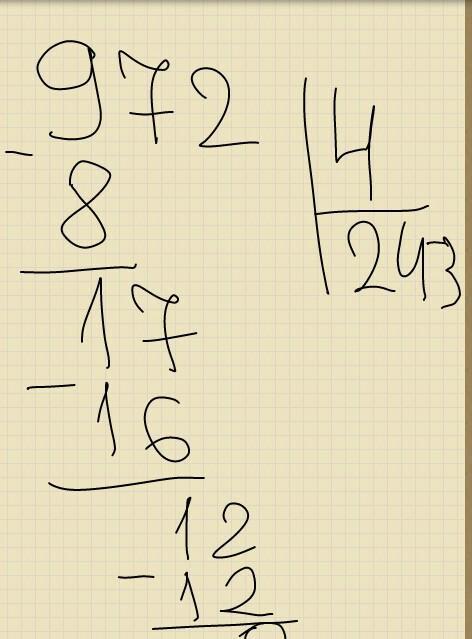 972 4
- 8 243
17
- 16
12
- 12
0